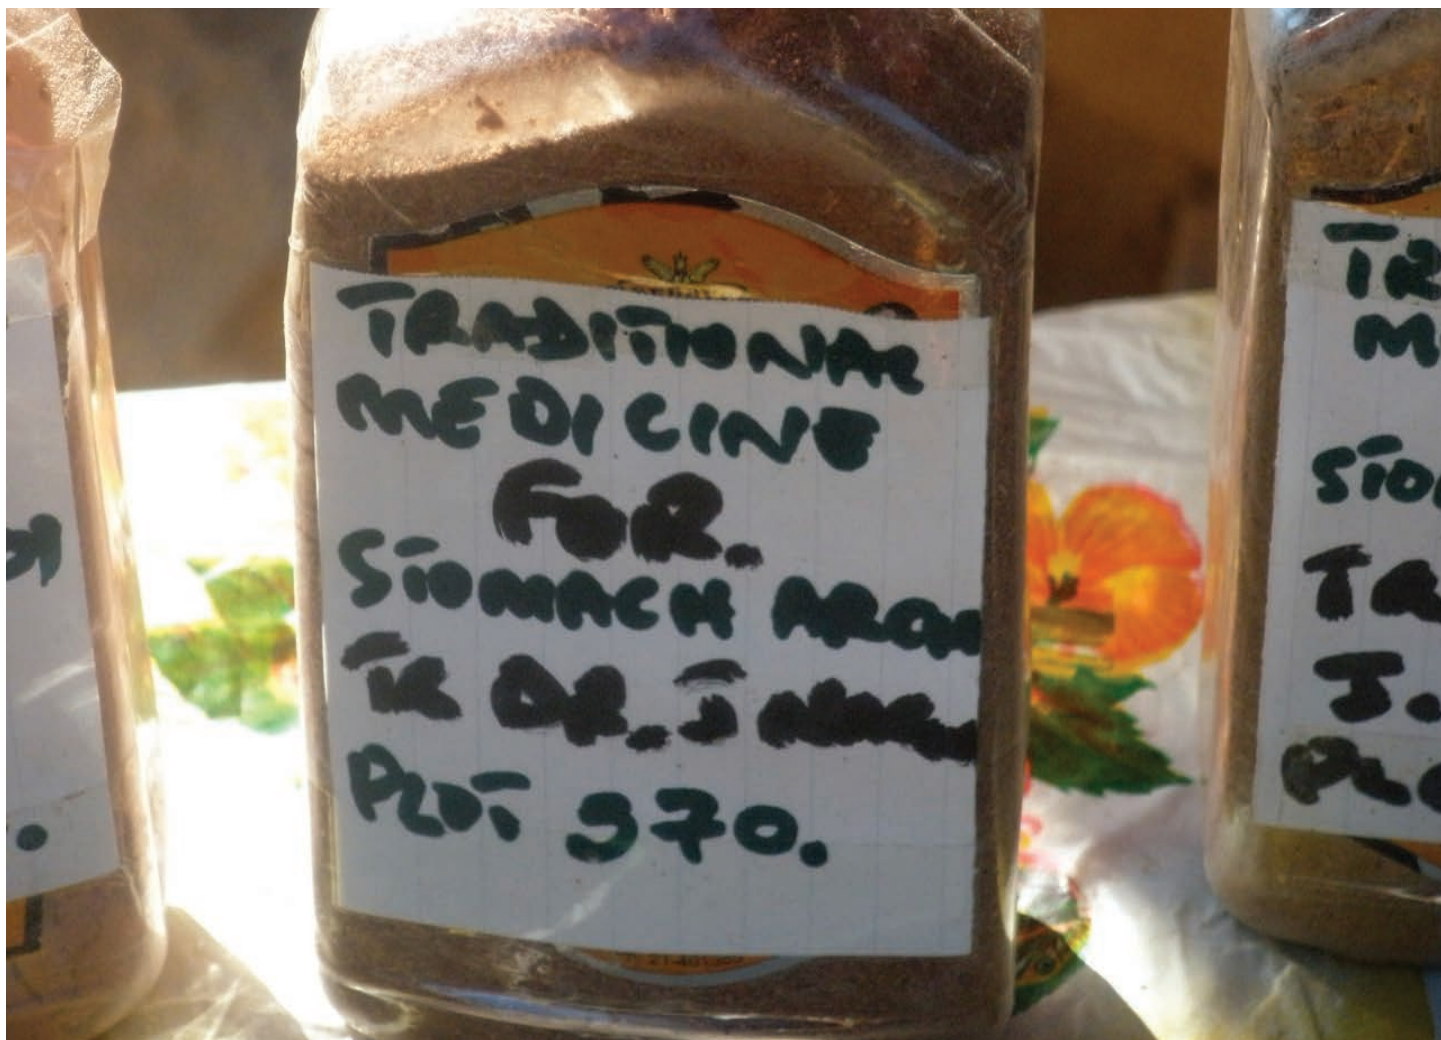 TRADITIONAL
MEDICINE
FOR.
STOMACH
TR DR. J
PLOT 370.
TR
M
STO
TR
J.
PLO